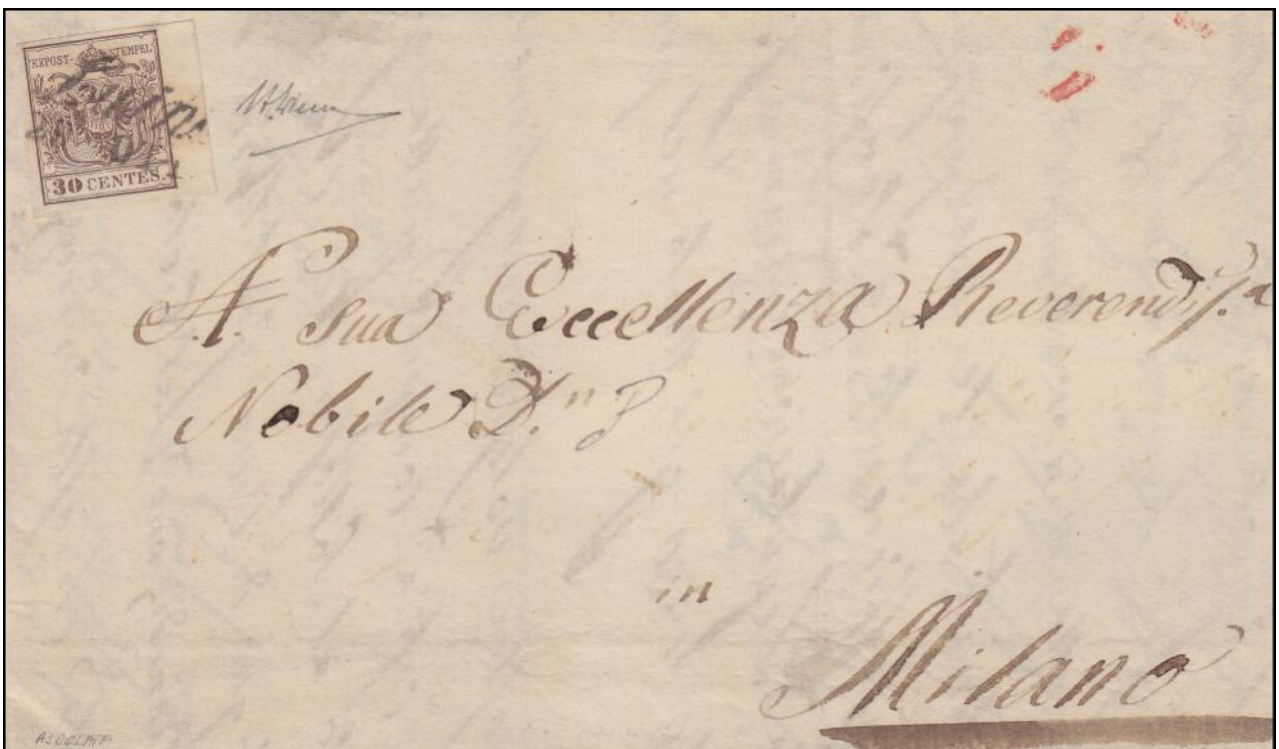 KKPOST-STEMPEL
30 CENTES.
A. Sua Eccellenza Reverendis.a
Nobile D.n
in
Milano